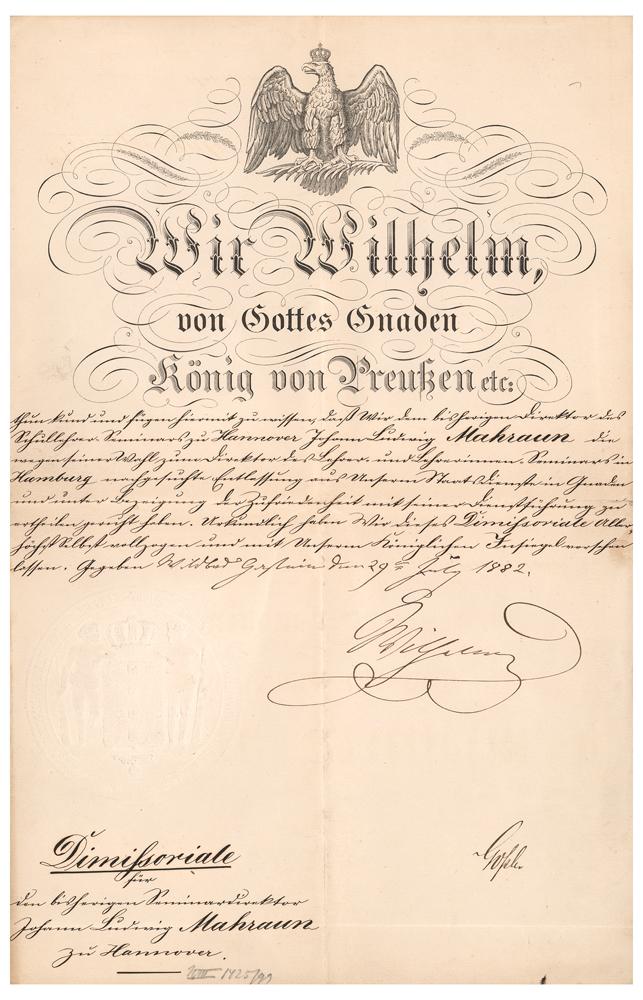 Wir Wilhelm,
von Gottes Gnaden
König von Preußen etc:
thun kund und fügen hiermit zu wissen, daß Wir dem bisherigen Direktor des
Schullehrer-Seminars zu Hannover Johann Ludwig Mahraun die
wegen seiner Wahl zum Direktor des Lehrer- und Lehrerinnen-Seminars in
Hamburg nachgesuchte Entlassung aus Unserm Staatsdienste in Gnaden
und unter Bezeigung der Zufriedenheit mit seiner Dienstführung zu
ertheilen geruht haben. Urkundlich haben Wir dieses Dimissoriale Aller-
höchst Selbst vollzogen und mit Unserm Königlichen Insiegel versehen
lassen. Gegeben Wildbad Gastein den 29ten July 1882.
Wilhelm
Dimissoriale
für
den bisherigen Seminardirektor
Johann Ludwig Mahraun
zu Hannover.
Goßler